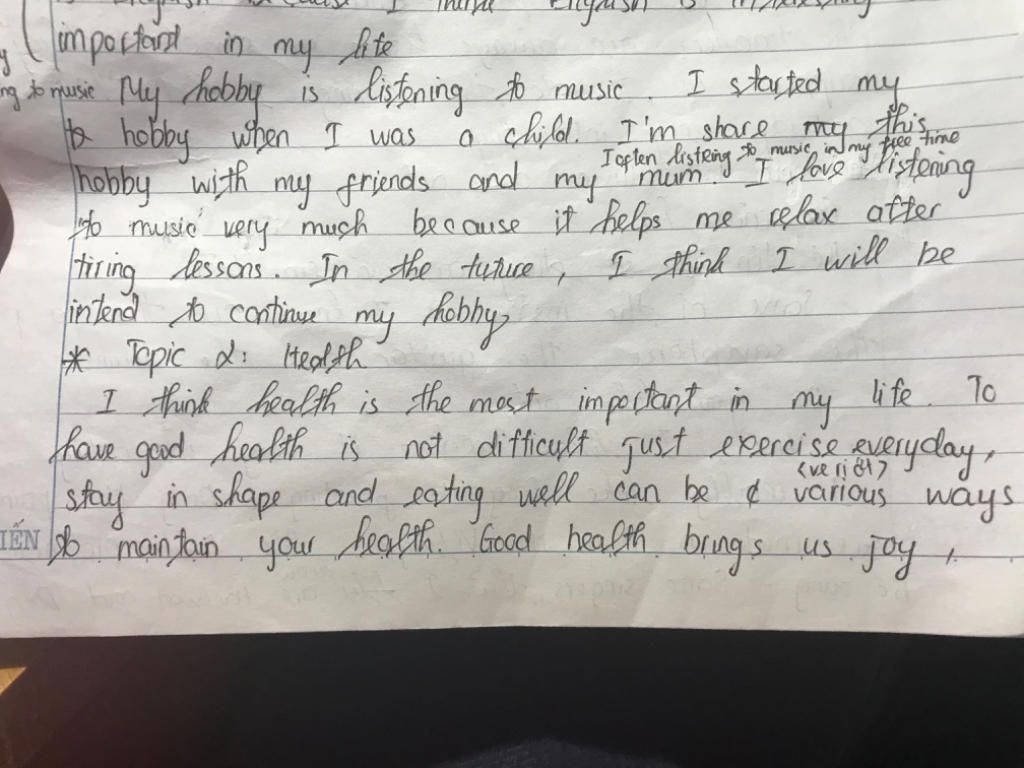 English because I think English is interesting
important in my life
ng to music My hobby is listening to music. I started my
hobby when I was a child. I'm share my this
I often listeing to music in my free time
hobby with my friends and my mum. I love listening
to music very much because it helps me relax after
tiring lessons. In the tuture, I think I will be
intend to continue my hobby,
* Topic 2: Health
I think health is the most important in my life. To
have good health is not difficult just exercise everyday,
stay in shape and eating well can be various ways
IẾN to maintain your health. Good health brings us joy,